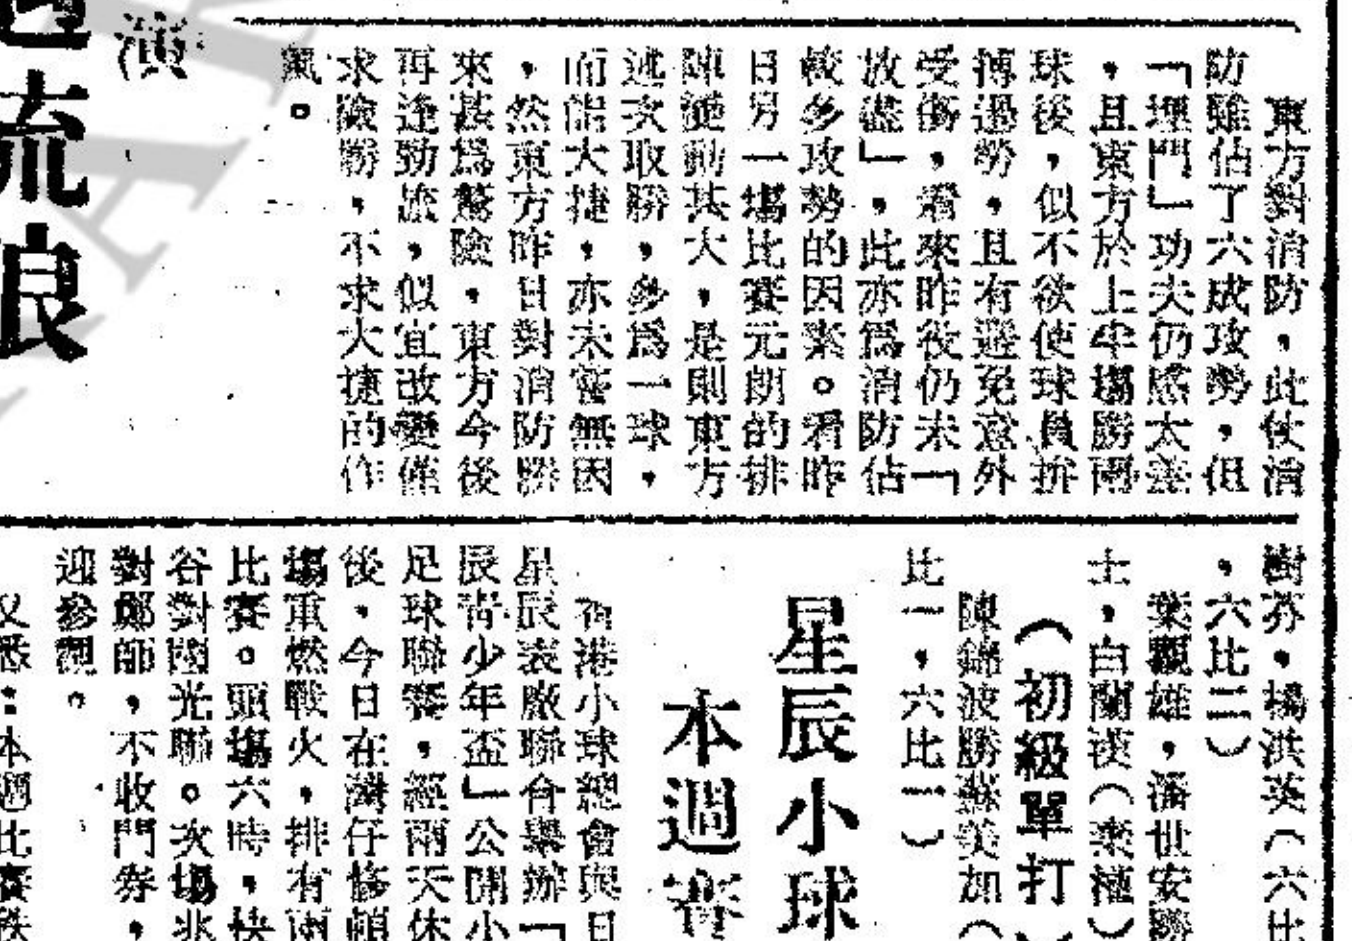 東方對消防,此仗消
防雖佔了六成攻勢,但
「埋門」功夫仍然太差
,且東方於上半場勝兩
球後,似不欲使球員拚
搏過勞,且有避免意外
受傷,看來昨役仍未「
放盡」,此亦為消防佔
較多攻勢的因素。看昨
日另一場比賽元朗的排
陣變動甚大,是則東方
述次取勝,多為一球,
而能大捷,亦未嘗無因
,然東方昨日對消防勝
來甚為驚險,東方今後
再逢勁旅,似宜改變僅
求險勝,不求大捷的作
風。
演
流浪
樹芬,楊洪英(六比
,六比三)
葉觀雄,潘世安勝
士,白蘭漢(棄權)
(初級單打)
陳錦波勝蘇美加(
比一,六比二)
星辰小球
本週賽
香港小球總會與日
星辰表廠聯合舉辦「
辰青少年盃」公開小
足球聯賽,經兩天休
後,今日在灣仔修頓
場重燃戰火,排有兩
比賽。頭場六時,快
谷對國光聯。次場兆
對鄭師,不收門券,
迎參觀。
又悉:本週比賽秩